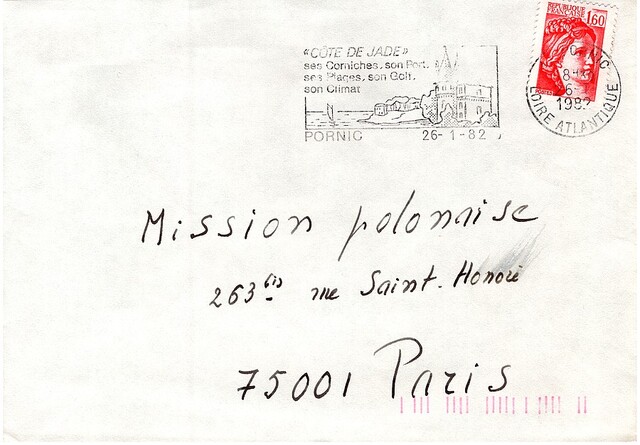 RÉPUBLIQUE
FRANÇAISE
1,60
«CÔTE DE JADE»
ses Corniches, son Port,
ses Plages, son Golf,
son Climat
PORNIC 26-1-82
PORNIC
8-
6-
1982
LOIRE ATLANTIQUE
Mission polonaise
263 bis rue Saint-Honoré
75001 Paris